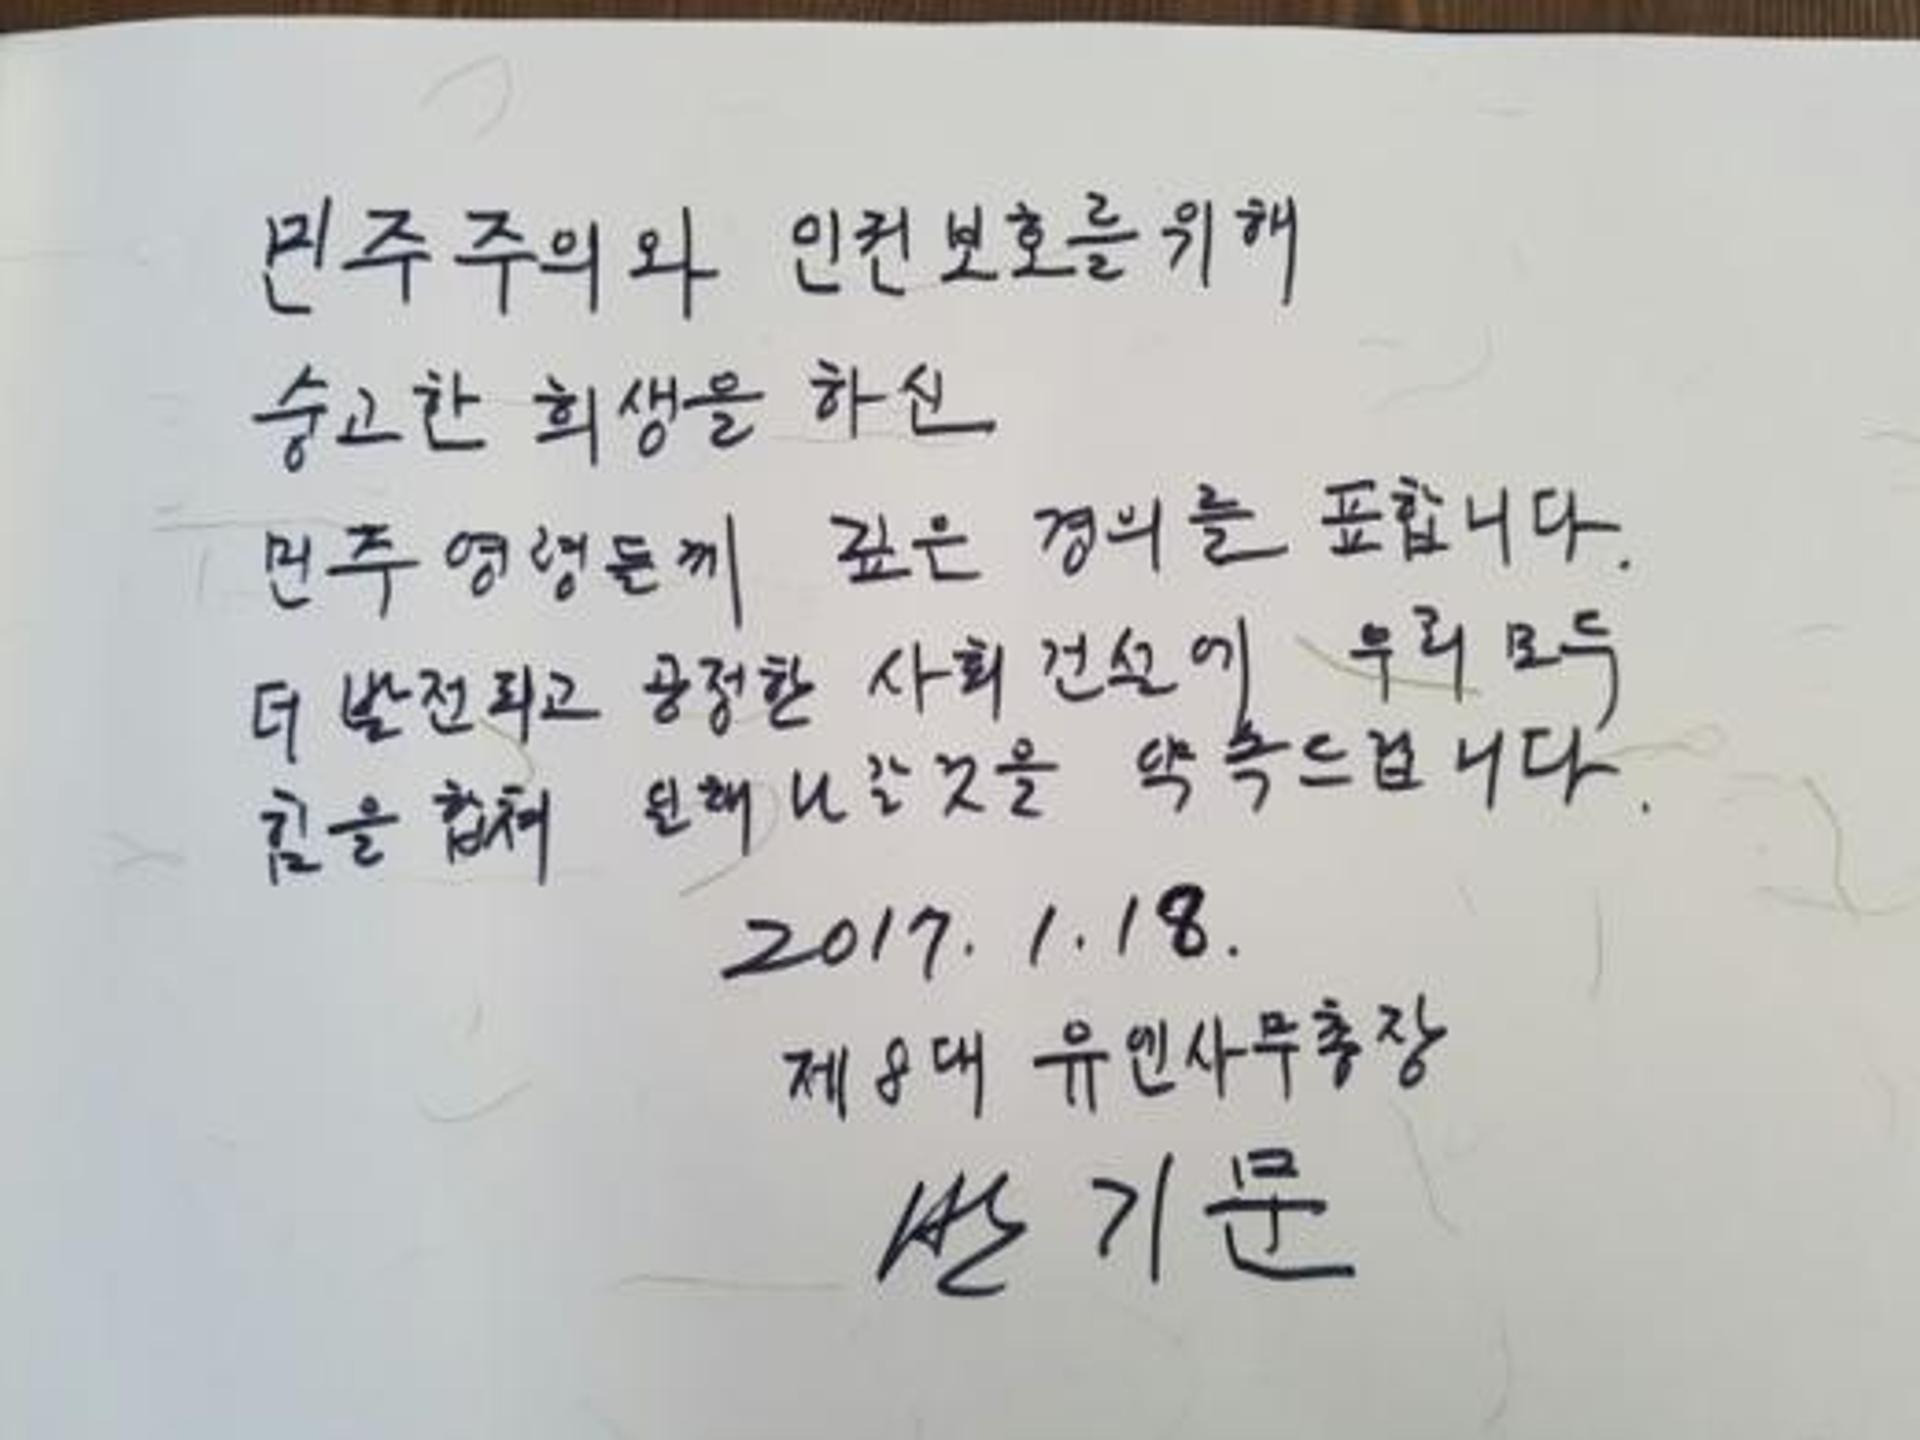 민주주의와 인권보호를위해
숭고한 희생을 하신
민주 영령들께 깊은 경의를 표합니다.
더 발전되고 공정한 사회건설에 우리 모두
힘을 합쳐 매진해나갈것을 약속드립니다.
2017. 1. 18.
제8대 유엔사무총장
반기문